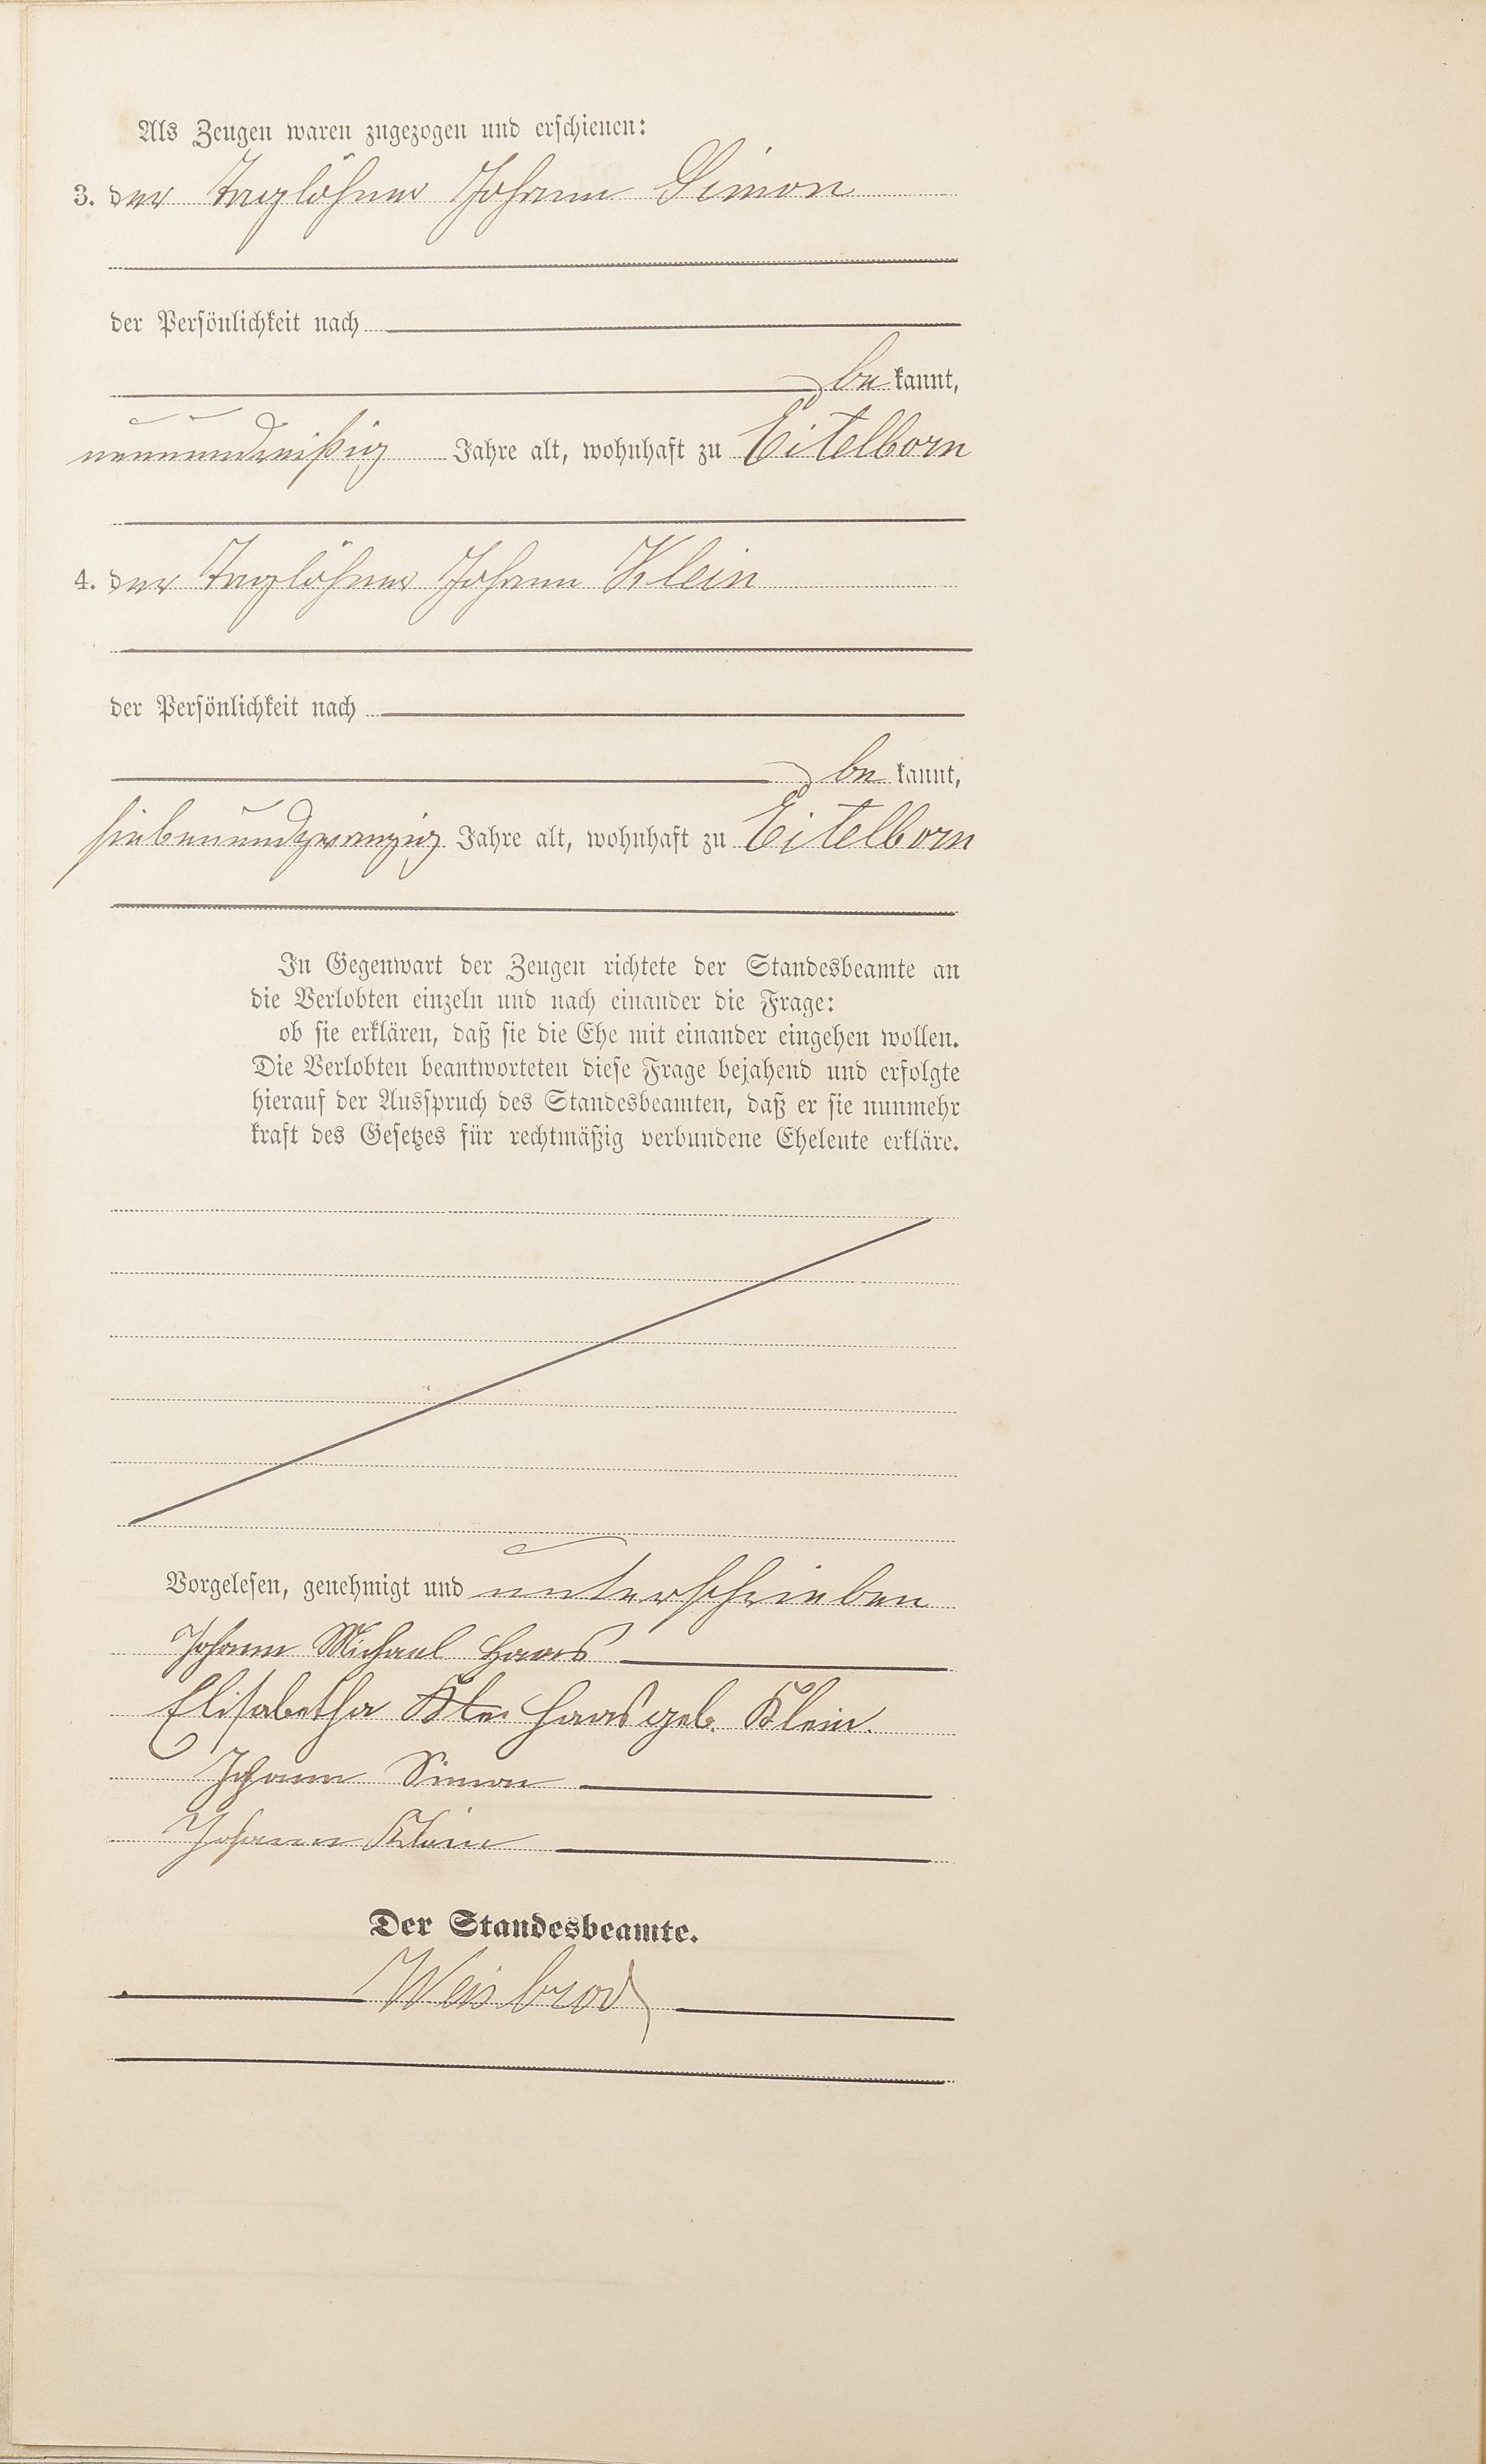 Als Zeugen waren zugezogen und erschienen:
3. der Taglöhner Johann Simon
der Persönlichkeit nach
bekannt,
neununddreißig Jahre alt, wohnhaft zu Eitelborn
4. der Taglöhner Johann Klein
der Persönlichkeit nach
bekannt,
siebenundzwanzig Jahre alt, wohnhaft zu Eitelborn
In Gegenwart der Zeugen richtete der Standesbeamte an
die Verlobten einzeln und nach einander die Frage:
ob sie erklären, daß sie die Ehe mit einander eingehen wollen.
Die Verlobten beantworteten diese Frage bejahend und erfolgte
hierauf der Ausspruch des Standesbeamten, daß er sie nunmehr
kraft des Gesetzes für rechtmäßig verbundene Eheleute erkläre.
Vorgelesen, genehmigt und unterschrieben
Johann Michael Haas
Elisabetha Kle Haas geb. Klein.
Johann Simon
Johann Klein
Der Standesbeamte.
Weisbrod